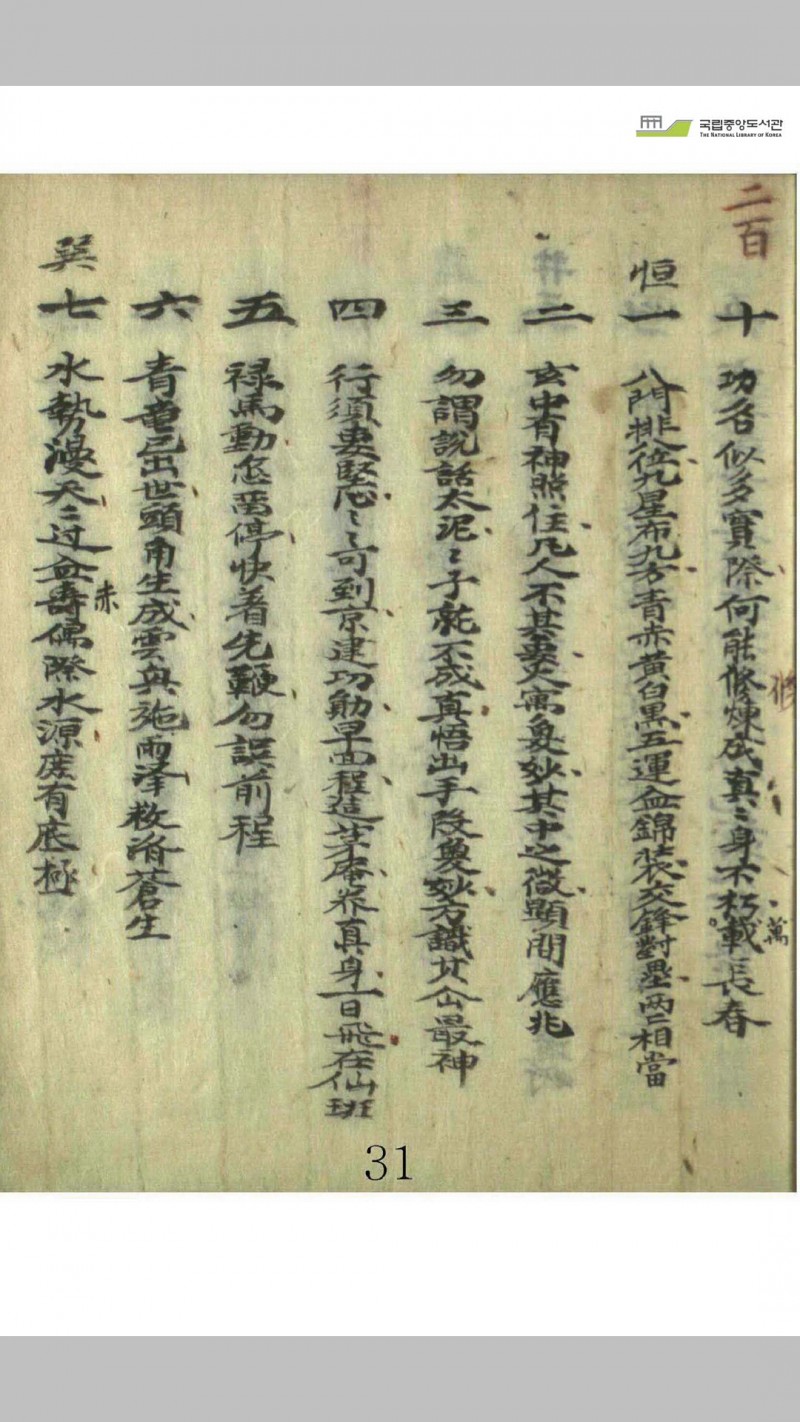 국립중앙도서관
THE NATIONAL LIBRARY OF KOREA
二百
十 功名似多實際何能修煉成真〻身不朽載長春
萬
修
恒
一 八門排位九星布九方青赤黃白黑五運金錦裝交鋒對壘兩〻相當
二 玄中有神照住凡人不其奧寓妙其中之微顯間應兆
三 勿謂說話太泥〻子就不成真悟出手段妙方識其最神
四 行須要堅心〻可到京建功勛早回程這茅庵养真身一日飛在仙班
五 禄馬動忽啇停快着先鞭勿誤前程
六 青竜已出世頭角生成雲與施雨泽救濟蒼生
巽
七 水勢漫天〻过血壽儒際水源度有底極
赤
31